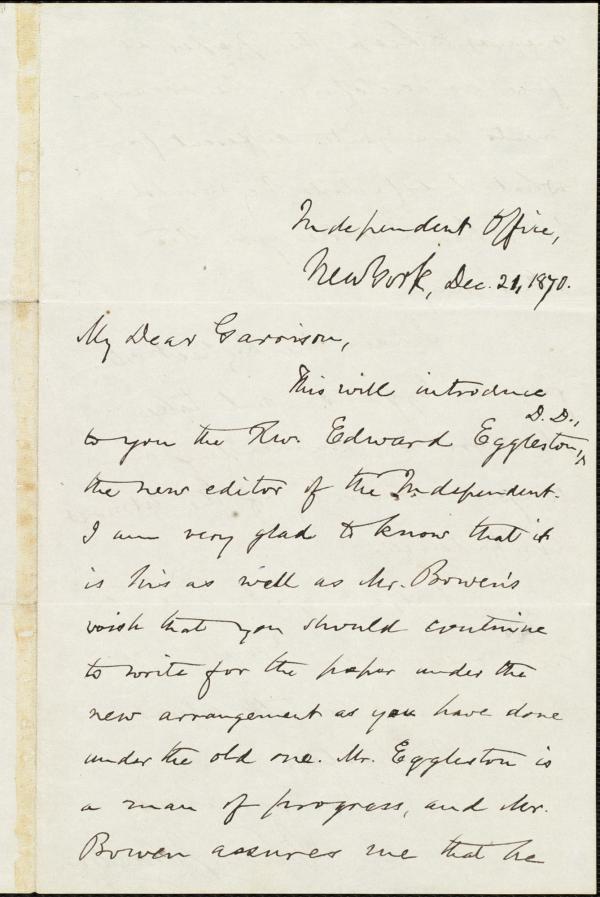 Independent Office,
New York, Dec. 21, 1870.
My Dear Garrison,
This will introduce
to you the Rev. Edward Eggleston, D. D.,
the new editor of the Independent.
I am very glad to know that it
is his as well as Mr. Bowen's
wish that you should continue
to write for the paper under the
new arrangement as you have done
under the old one. Mr. Eggleston is
a man of progress, and Mr.
Bowen assures me that he